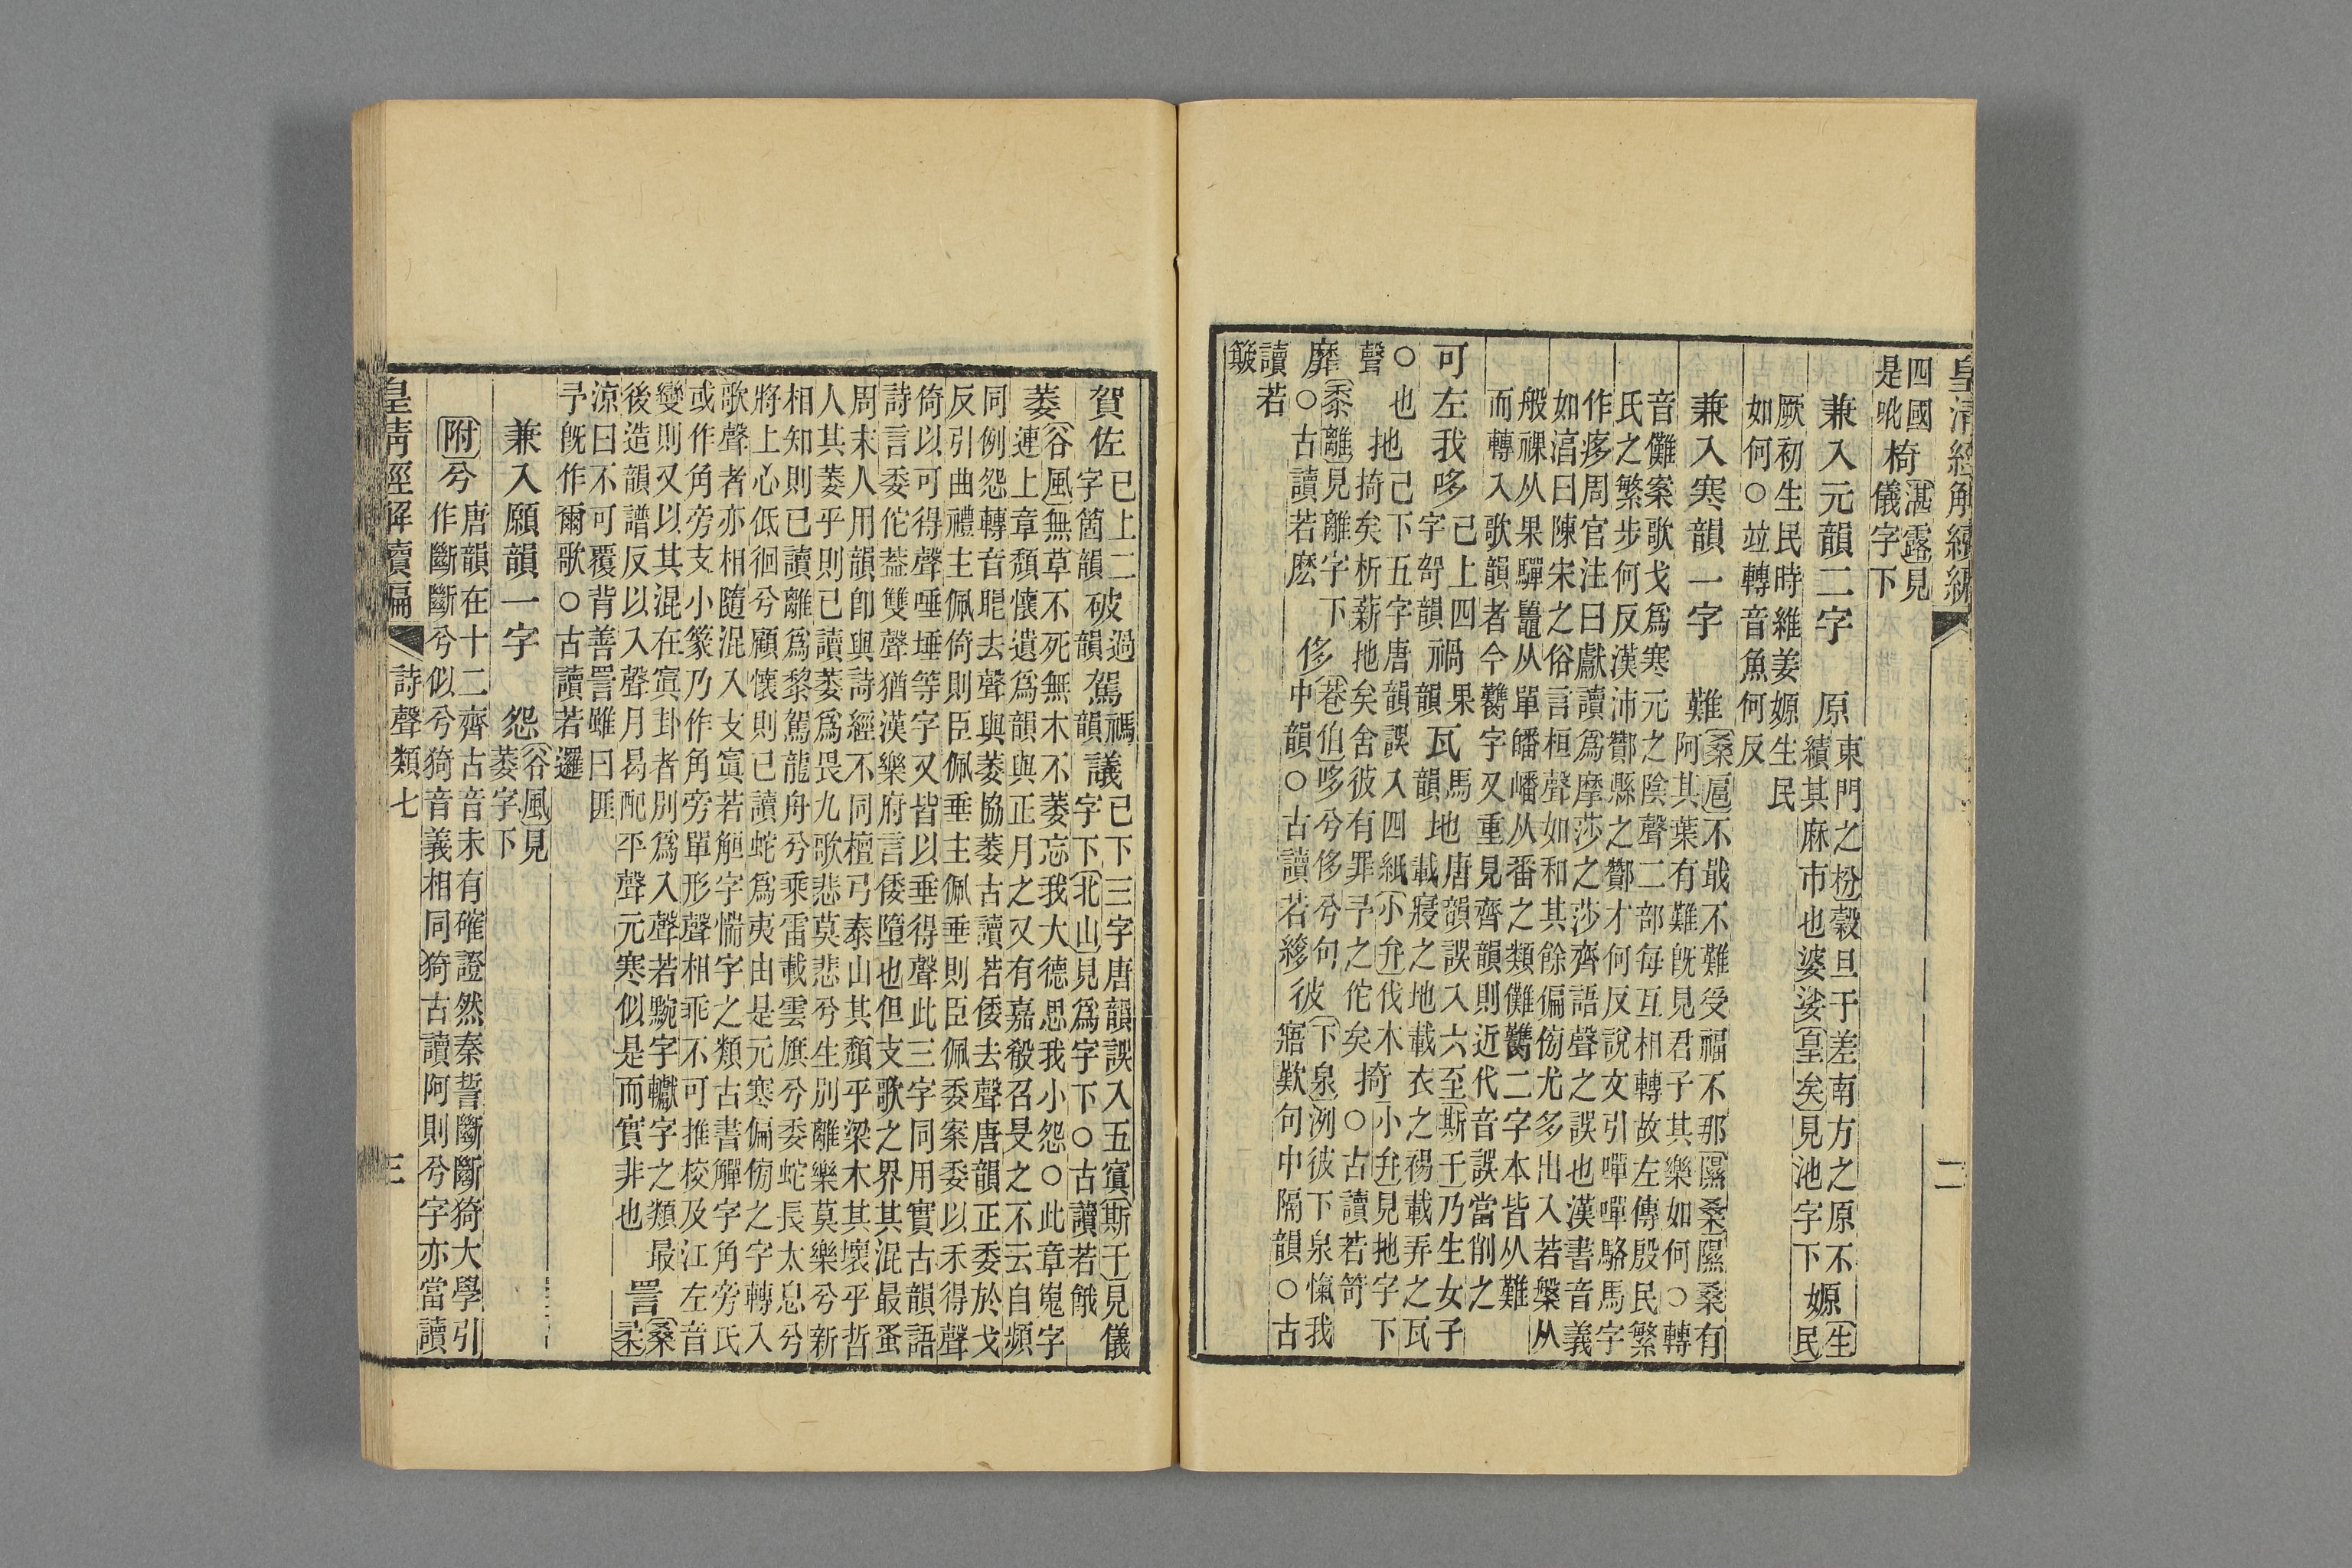 皇清經解續編
二
四國
是吪
椅
湛露見
儀字下
兼入元韻二字
原
東門之枌穀旦于差南方之原不
績其麻市也婆娑皇矣見池字下
嫄
生
民
厥初生民時維姜嫄生民
如何○竝轉音魚何反
兼入寒韻一字
難
桑扈不戢不難受福不那隰桑隰桑有
阿其葉有難旣見君子其樂如何○轉
音儺案歌戈爲寒元之陰聲二部每互相轉故左傳殷民繁
氏之繁步何反漢沛酇縣之酇才何反說文引嘽嘽駱馬字
作痑周官注曰獻讀爲摩莎之莎齊語聲之誤也漢書音義
如淳曰陳宋之俗言桓聲如和其餘偏傍尤多出入若槃从
般祼从果驒鼉从單皤嶓从番之類儺䕼二字本皆从難
而轉入歌韻者今䕼字又重見齊韻則近代音誤當削之
可左我哆
已上四
字哿韻
禍
果
韻
瓦
馬
韻
地
唐韻誤入六至斯干乃生女子
載寢之地載衣之裼載弄之瓦
○
聲
也
扡
己下五字唐韻誤入四紙小弁伐木
掎矣析薪扡矣舍彼有罪予之佗矣
掎
小弁見扡字下
○古讀若笴
靡
黍離見離字下
○古讀若麽
侈
巷伯哆兮侈兮句
中韻○古讀若縿
彼
下泉洌彼下泉愾我
寤歎句中隔韻○古
讀若
簸
賀佐
已上二
字箇韻
破
過
韻
駕禡
韻
議
已下三字唐韻誤入五寘斯干見儀
字下北山見爲字下○古讀若餓
萎
谷風無草不死無木不萎忘我大德思我小怨○此章嵬字
連上章頹懷遺爲韻與正月之又有嘉殽召旻之不云自頻
同例怨轉音䀩去聲與萎協萎古讀若倭去聲唐韻正委於戈
反引曲禮主佩倚則臣佩垂主佩垂則臣佩委案委以禾得聲
倚以可得聲唾埵等字又皆以垂得聲此三字同用實古韻語
詩言委佗葢雙聲猶漢樂府言倭墮也但支歌之界其混最蚤
周末人用韻卽與詩經不同檀弓泰山其頹乎梁木其壞乎哲
人其萎乎則已讀萎爲畏九歌悲莫悲兮生別離樂莫樂兮新
相知則已讀離爲黎駕龍舟兮乘雷載雲旗兮委蛇長太息兮
將上心低徊兮顧懷則已讀蛇爲夷由是元寒偏傍之字轉入
歌聲者亦相隨混入支寘若觛字惴字之類古書觶字角旁氏
或作角旁支小篆乃作角旁單形聲相乖不可推校及江左音
變則又以其混在寘卦者別爲入聲若䩊字钀字之類最
後造韻譜反以入聲月曷配平聲元寒似是而實非也
詈
桑
柔
涼曰不可覆背善詈雖曰匪
予旣作爾歌○古讀若邏
兼入願韻一字
怨
谷風見
萎字下
附
兮
唐韻在十二齊古音未有確證然秦誓斷斷猗大學引
作斷斷兮似兮猗音義相同猗古讀阿則兮字亦當讀
皇清經解續編
詩聲類七
三